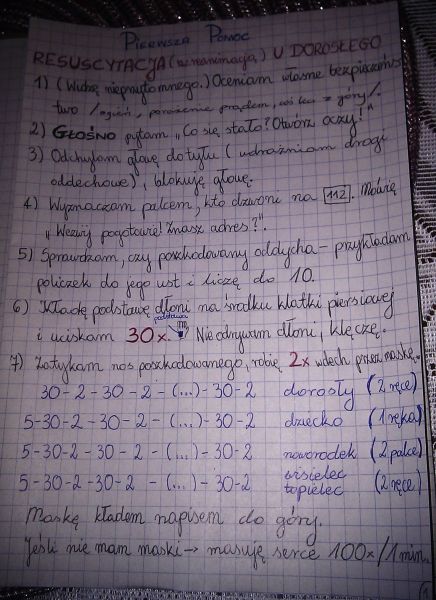 PIERWSZA POMOC
RESUSCYTACJA (reanimacja) U DOROSŁEGO
1) (Widzę nieprzytomnego.) Oceniam własne bezpieczeńs
two /ogień, porażenie prądem, coś leci z góry/.
2) GŁOŚNO pytam „Co się stało? Otwórz oczy!"
3) Odchylam głowę do tyłu (udrażniam drogi
oddechowe), blokuję głowę.
4) Wyznaczam palcem, kto dzwoni na 112. Mówię
„Wezwij pogotowie! Znasz adres?".
5) Sprawdzam, czy poszkodowany oddycha - przykładam
policzek do jego ust i liczę do 10.
6) Kładę podstawę dłoni na środku klatki piersiowej
podstawa
i uciskam 30x. Nie odrywam dłoni, klęczę.
7) Zatykam nos poszkodowanego, robię 2x wdech przez maskę.
30-2-30-2-(...)-30-2 dorosły (2 ręce)
5-30-2-30-2-(...)-30-2 dziecko (1 ręka)
5-30-2-30-2-(...)-30-2 noworodek (2 palce)
5-30-2-30-2-(...)-30-2 wisielec topielec (2 ręce)
Maskę kładem napisem do góry.
Jeśli nie mam maski → masuję serce 100x/1min.